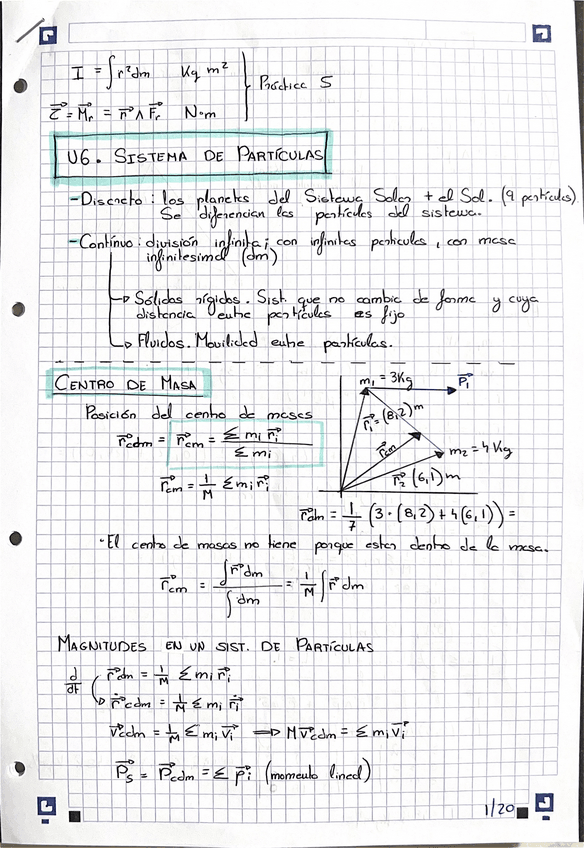 I = ∫r²dm Kg m²
Práctica 5
τ⃗ = M⃗r = r⃗ ∧ F⃗r N·m
U6. SISTEMA DE PARTÍCULAS
- Discreto: los planetas del Sistema Solar + el Sol. (9 partículas)
Se diferencian las partículas del sistema.
- Contínuo: división infinita; con infinitas partículas, con masa
infinitesimal (dm)
→ Sólidos rígidos. Sist. que no cambia de forma y cuya
distancia entre partículas es fijo
→ Fluidos. Movilidad entre partículas.
CENTRO DE MASA
Posición del centro de masas
r⃗cdm = r⃗cm = Σ mi r⃗i / Σ mi
r⃗cm = 1/M Σ mi r⃗i
m₁ = 3Kg P⃗₁
r⃗₁ = (8,2) m
r⃗cm
m₂ = 4 Kg
r⃗₂ (6,1) m
r⃗cdm = 1/7 (3·(8,2) + 4(6,1)) =
· El centro de masas no tiene porque estar dentro de la masa.
r⃗cm = ∫r⃗dm / ∫dm = 1/M ∫r⃗ dm
MAGNITUDES EN UN SIST. DE PARTÍCULAS
d/dt r⃗cdm = 1/M Σ mi r⃗i
→ ṙ⃗cdm = 1/M Σ mi ṙ⃗i
v⃗cdm = 1/M Σ mi v⃗i ⟹ M v⃗cdm = Σ mi v⃗i
P⃗s = P⃗cdm = Σ p⃗i (momento lineal)
1/20